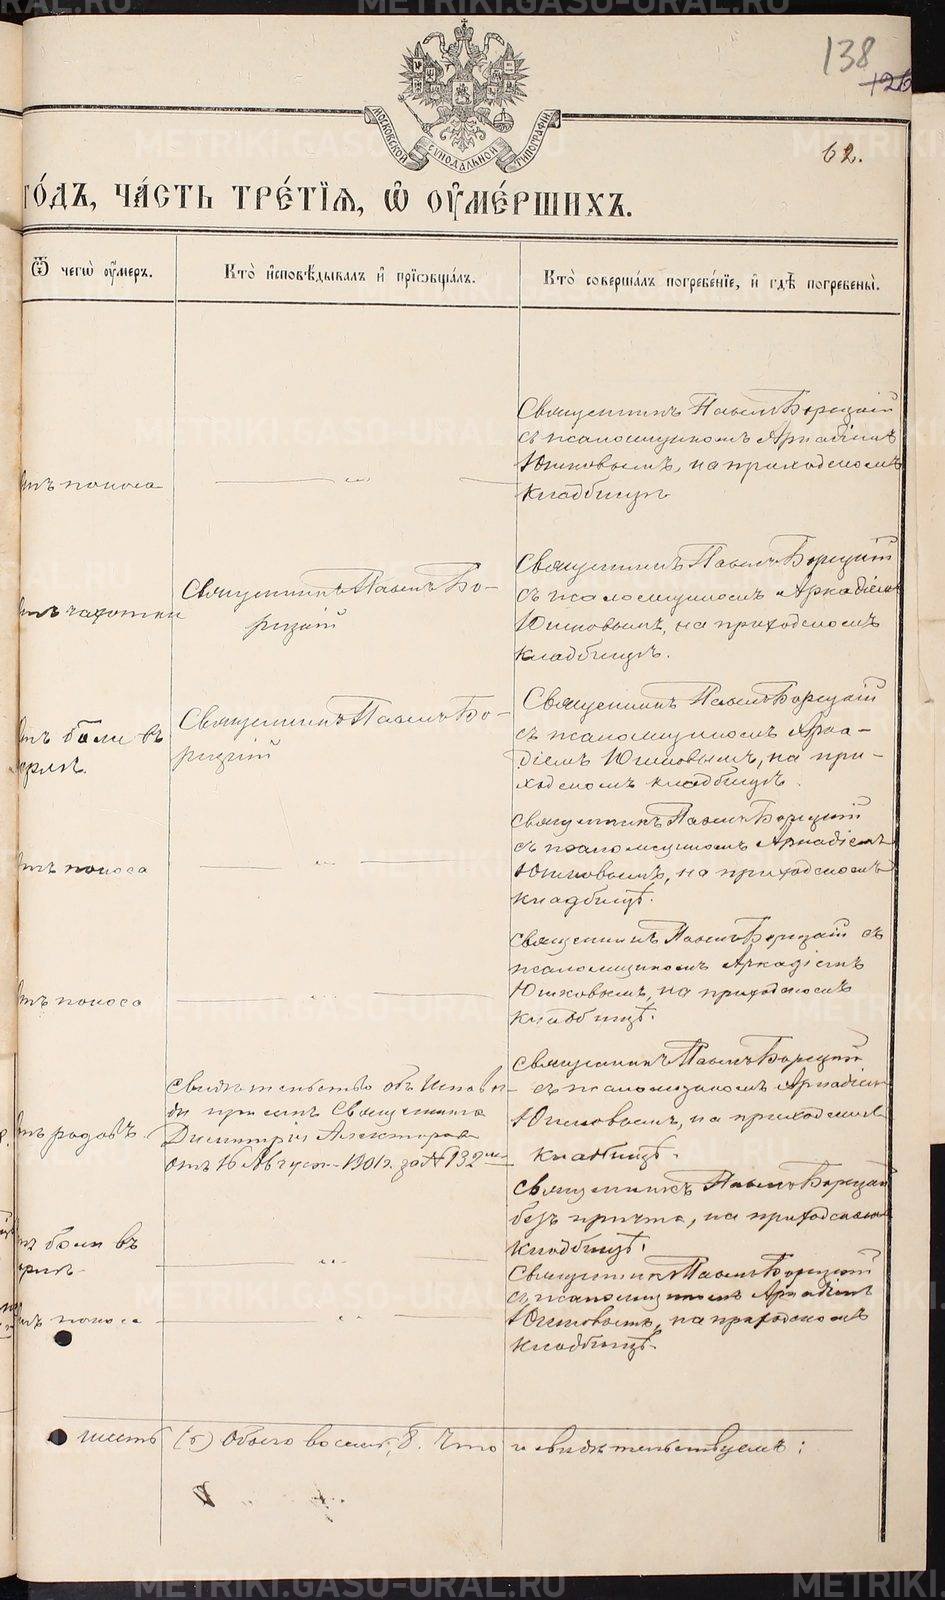 138
126
62.
МОСКОВСКОЙ СѴНОДАЛЬНОЙ ТИПОГРАФІИ
го́дъ, ча́сть тре́тїѧ, ѡ҆ ᲂу҆ме́ршихъ.
Ѿ чегѡ̀ ᲂу҆́меръ.
Кто̀ и҆сповѣ́дывалъ и҆ прїѡбща́лъ.
Кто̀ соверша́лъ погребе́нїе, и҆ гдѣ̀ погребены̀.
тъ поноса
Священникъ Павелъ Борецкій
съ псаломщикомъ Аркадіемъ
Юшковымъ, на приходскомъ
кладбищѣ
тъ чахотки
Священникъ Павелъ Бо-
рецкій
Священникъ Павелъ Борецкій
съ псаломщикомъ Аркадіемъ
Юшковымъ, на приходскомъ
кладбищѣ.
тъ боли въ
орлѣ.
Священникъ Павелъ Бо-
рецкій
Священникъ Павелъ Борецкій
съ псаломщикомъ Арка-
діемъ Юшковымъ, на при-
ходскомъ кладбищѣ.
тъ поноса
Священникъ Павелъ Борецкій
съ псаломщикомъ Аркадіемъ
Юшковымъ, на приходскомъ
кладбищѣ.
тъ поноса
Священникъ Павелъ Борецкій съ
псаломщикомъ Аркадіемъ
Юшковымъ, на приходскомъ
кладбищѣ.
тъ родовъ
Свидѣтельство объ исповѣ-
ди Священника
Димитрія
отъ 16 Августа 1901 г. за № 132
Священникъ Павелъ Борецкій
съ псаломщикомъ Аркадіемъ
Юшковымъ, на приходскомъ
кладбищѣ.
ъ боли въ
орлѣ
Священникъ Павелъ Борецкій
безъ причта, на приходскомъ
кладбищѣ.
тъ поноса
Священникъ Павелъ Борецкій
съ псаломщикомъ Аркадіемъ
Юшковымъ, на приходскомъ
кладбищѣ.
шесть (6) Обоего восемь, 8. Что и свидѣтельствуемъ:
METRIKI.GASO-URAL.RU